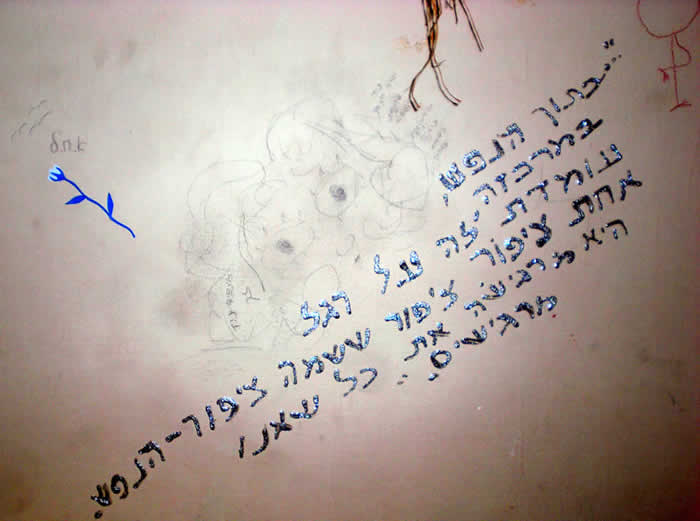 "..בתוך הנפש,
במרכזה,
עומדת על רגל
אחת ציפור ציפור ששמה ציפור-הנפש.
היא מרגישה את כל שאנו
מרגישים."